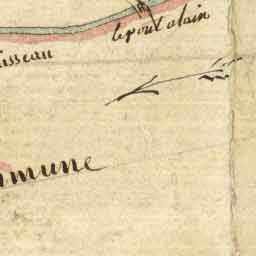 le pont alain
isseau
mmune